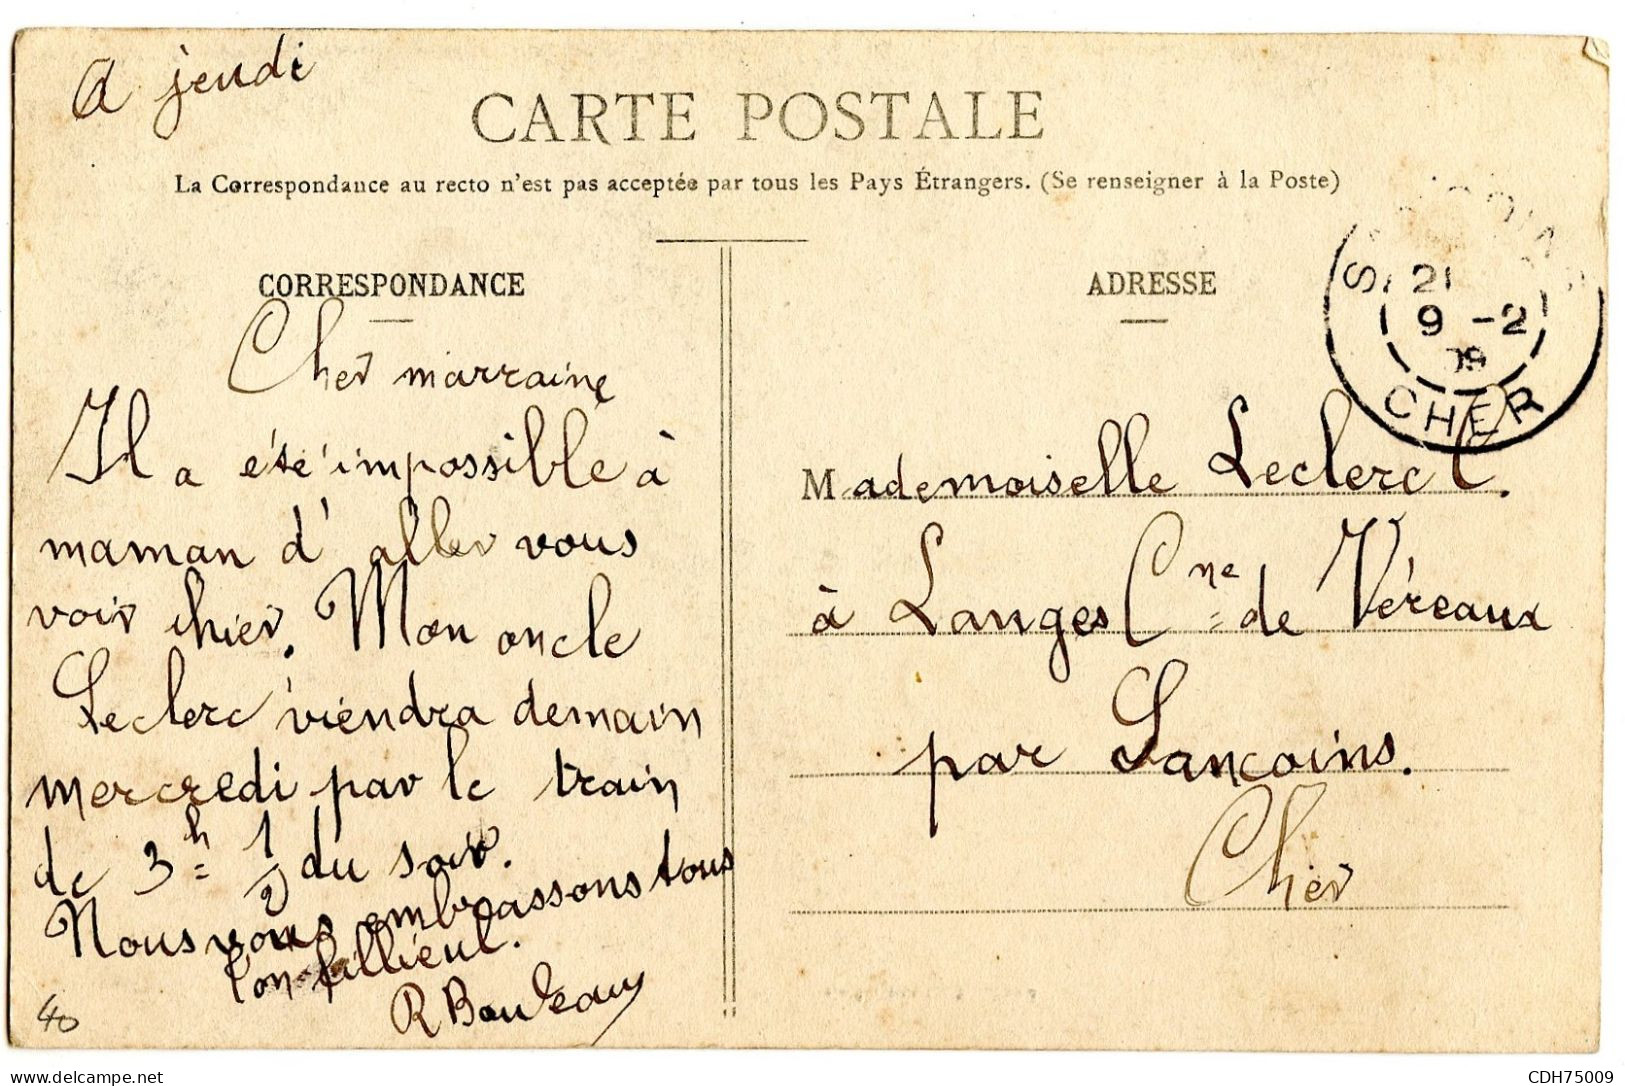 A jeudi
CARTE POSTALE
La Correspondance au recto n'est pas acceptée par tous les Pays Étrangers. (Se renseigner à la Poste)
CORRESPONDANCE
Cher marraine
Il a été impossible à
maman d'aller vous
voir hier. Mon oncle
Leclerc viendra demain
mercredi par le train
de 3h 1/2 du soir.
Nous vous embrassons tous
Ton fillieul.
R
40
ADRESSE
Mademoiselle Leclerc C.
à Langes Cne de Véreaux
par Sancoins.
Cher
21
9 -2
09
CHER
delcampe.net
CDH75009